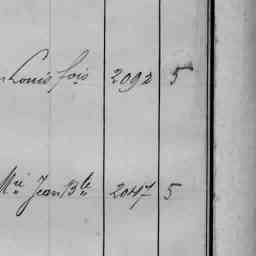 Louis fois 2092 5
Mie Jean Bte 2047 5